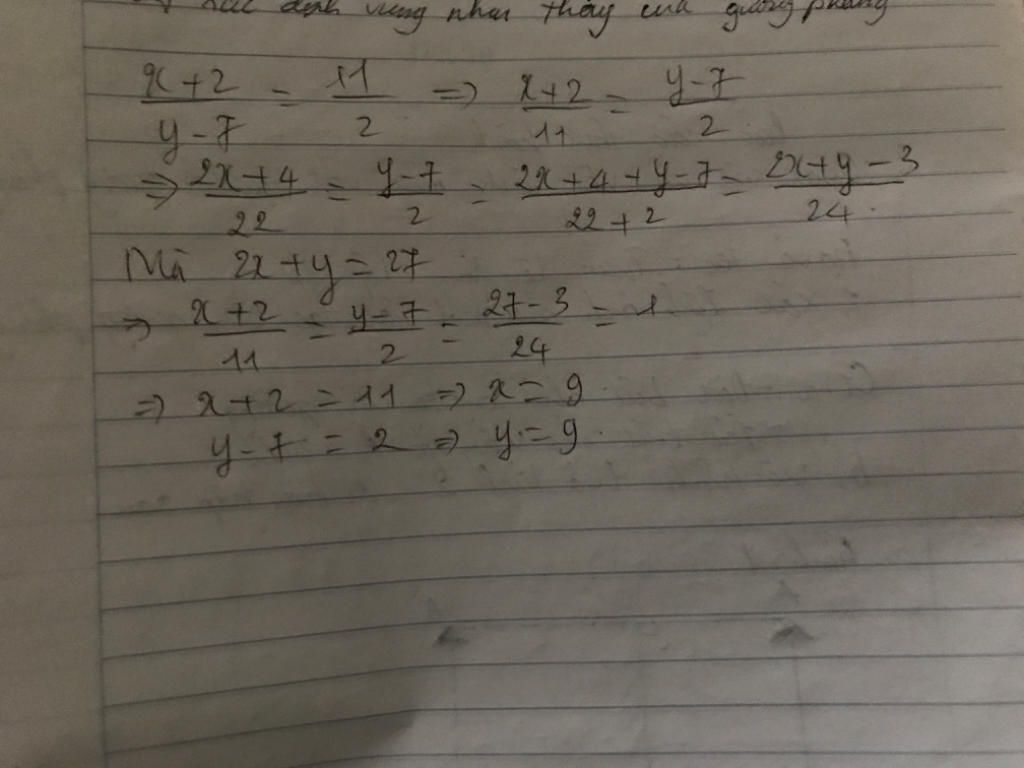 định vùng nhìn thấy của gương phẳng
x+2/y-7 = 11/2 => x+2/11 = y-7/2
=> 2x+4/22 = y-7/2 = 2x+4+y-7/22+2 = 2x+y-3/24.
Mà 2x+y=27
=> x+2/11 = y-7/2 = 27-3/24 = 1
=> x+2 = 11 => x = 9
y-7 = 2 => y = 9.